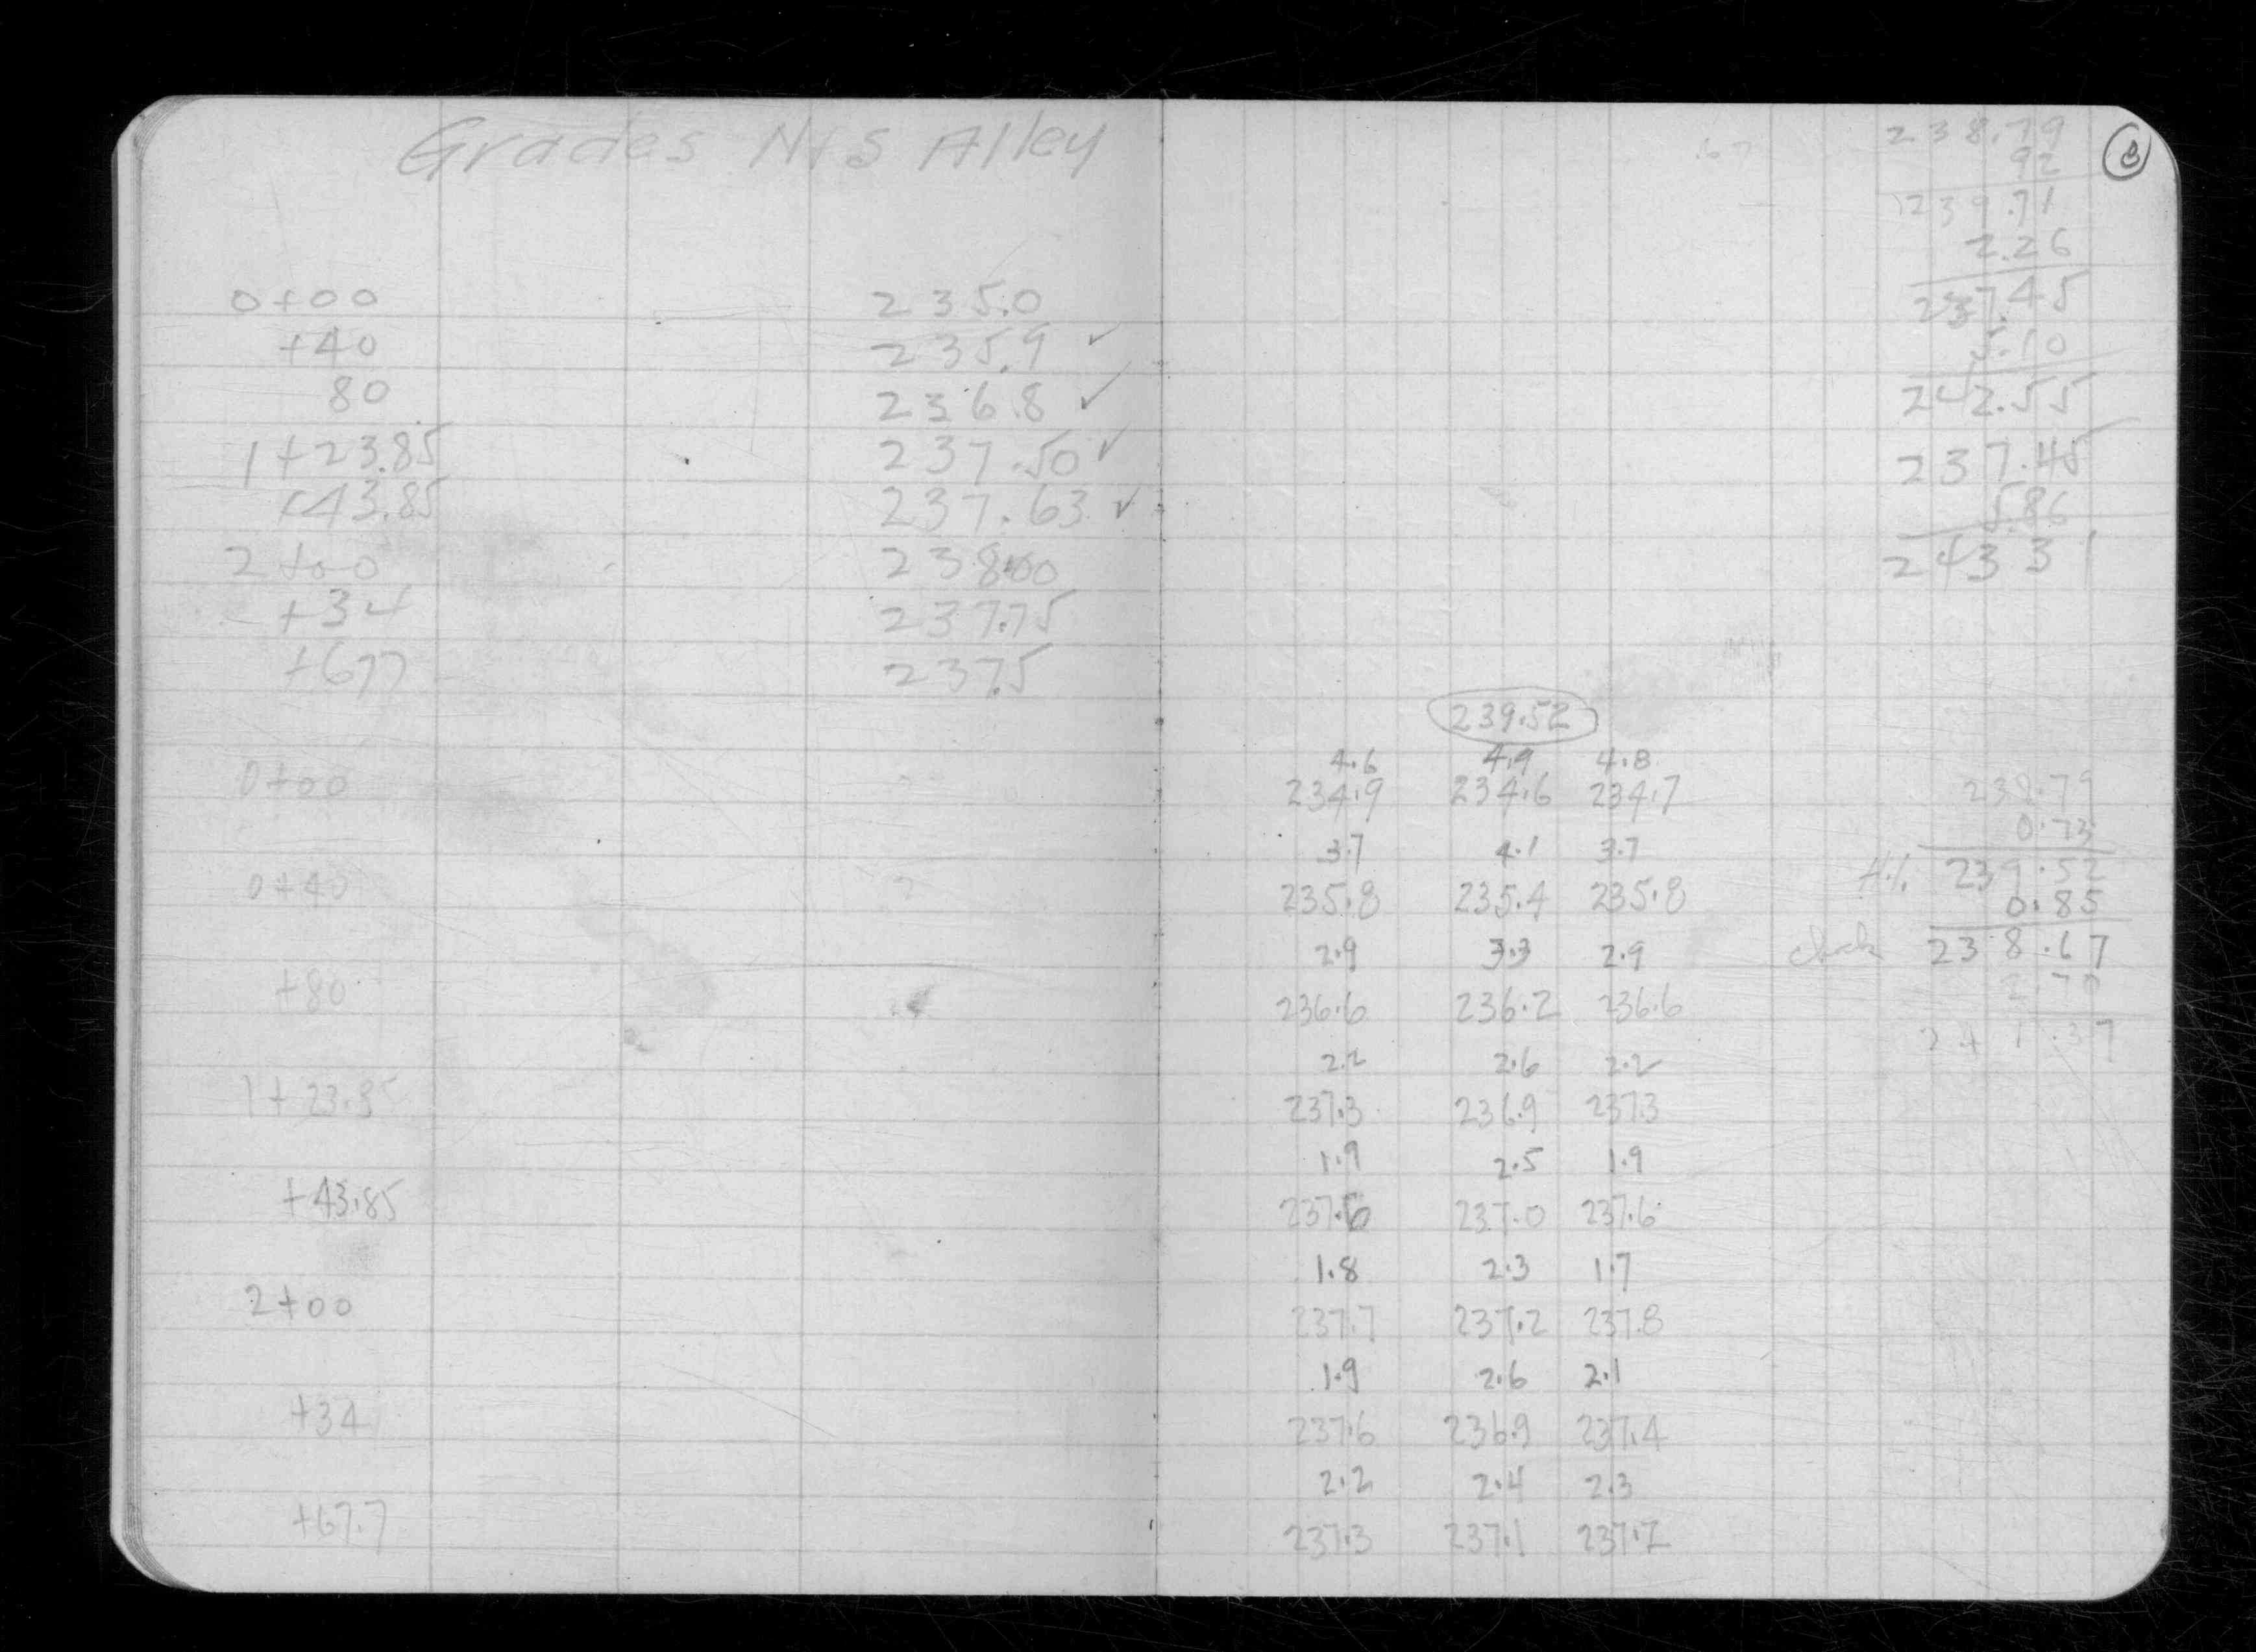 Grades N+S Alley
0+00 235.0
+40 235.9 ✓
80 236.8 ✓
1+23.85 237.50 ✓
+43.85 237.63 ✓
2+00 238.00
+34 237.75
+677 237.5
0+00
0+40
+80
1+23.85
+43.85
2+00
+34
+67.7
.67
3
238.79
92
239.71
2.26
237.45
5.10
242.55
237.45
5.86
243.31
239.52
4.6 4.9 4.8
234.9 234.6 234.7
3.7 4.1 3.7
235.8 235.4 235.8
2.9 3.3 2.9
236.6 236.2 236.6
2.2 2.6 2.2
237.3 236.9 237.3
1.9 2.5 1.9
237.6 237.0 237.6
1.8 2.3 1.7
237.7 237.2 237.8
1.9 2.6 2.1
237.6 236.9 237.4
2.2 2.4 2.3
237.3 237.1 237.2
238.79
0.73
H.I. 239.52
0.85
check 238.67
2.70
241.37